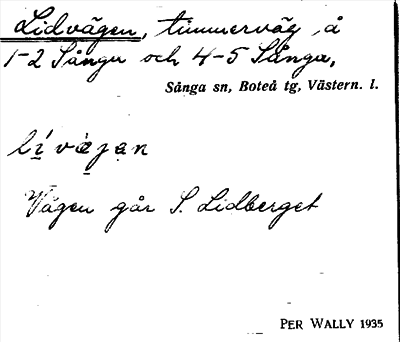 Lidvägen, timmerväg, å
1-2 Sånga och 4-5 Sånga,
Sånga sn, Boteå tg, Västern. l.
Vägen går S. Lidberget
PER WALLY 1935